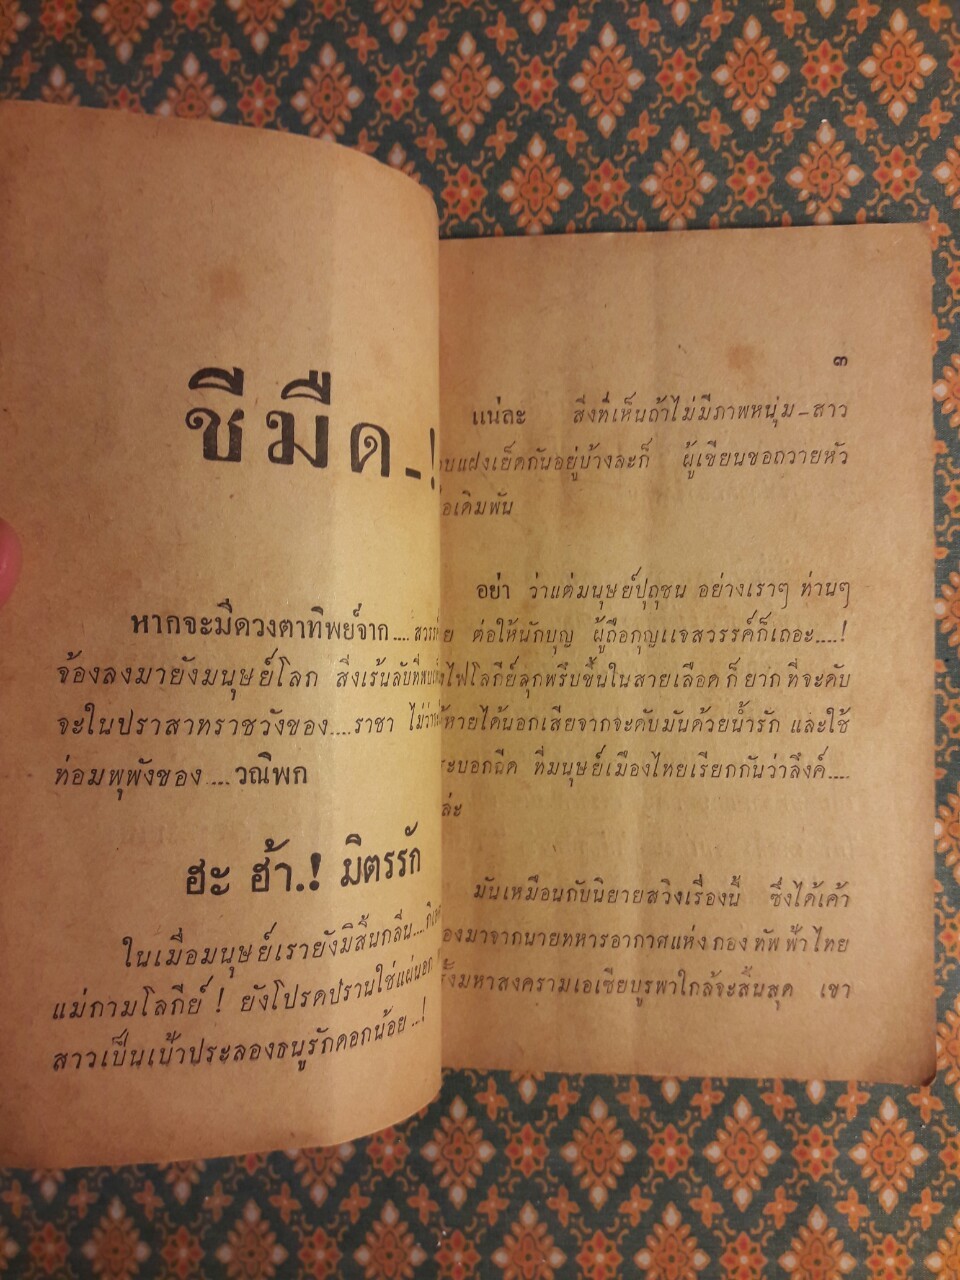 ชีมืด-!
หากจะมีดวงตาทิพย์จาก....
จ้องลงมายังมนุษย์โลก สิ่งเร้นลับที่
จะในปราสาทราชวังของ....ราชา ไม่ว่า
ท่อมพุพังของ....วณิพก
ฮะ ฮ้า.! มิตรรัก
ในเมื่อมนุษย์เรายังมีสิ้นกลิ่น....
แม่กามโลกีย์ ! ยังโปรดปรานใช่แผ่นอก
สาวเป็นเป้าประลองธนูรักดอกน้อย...!
๓
แน่ละ สิ่งที่เห็นถ้าไม่มีภาพหนุ่ม-สาว
แฝงเย็ดกันอยู่บ้างละก็ ผู้เขียนขอถวายหัว
เดิมพัน
อย่า ว่าแต่มนุษย์ปุถุชน อย่างเราๆ ท่านๆ
ต่อให้นักบุญ ผู้ถือกุญแจสวรรค์ก็เถอะ....!
ไฟโลกีย์ลุกพรึบขึ้นในสายเลือด ก็ ยาก ที่จะดับ
หายได้นอกเสียจากจะดับมันด้วยน้ำรัก และใช้
กระบอกฉีด ที่มนุษย์เมืองไทยเรียกกันว่าลึงค์....
ล่ะ
มันเหมือนกับนิยายสวิงเรื่องนี้ ซึ่งได้เค้า
มาจากนายทหารอากาศแห่ง กอง ทัพ ฟ้า ไทย
มหาสงครามเอเซียบูรพาใกล้จะสิ้นสุด เขา